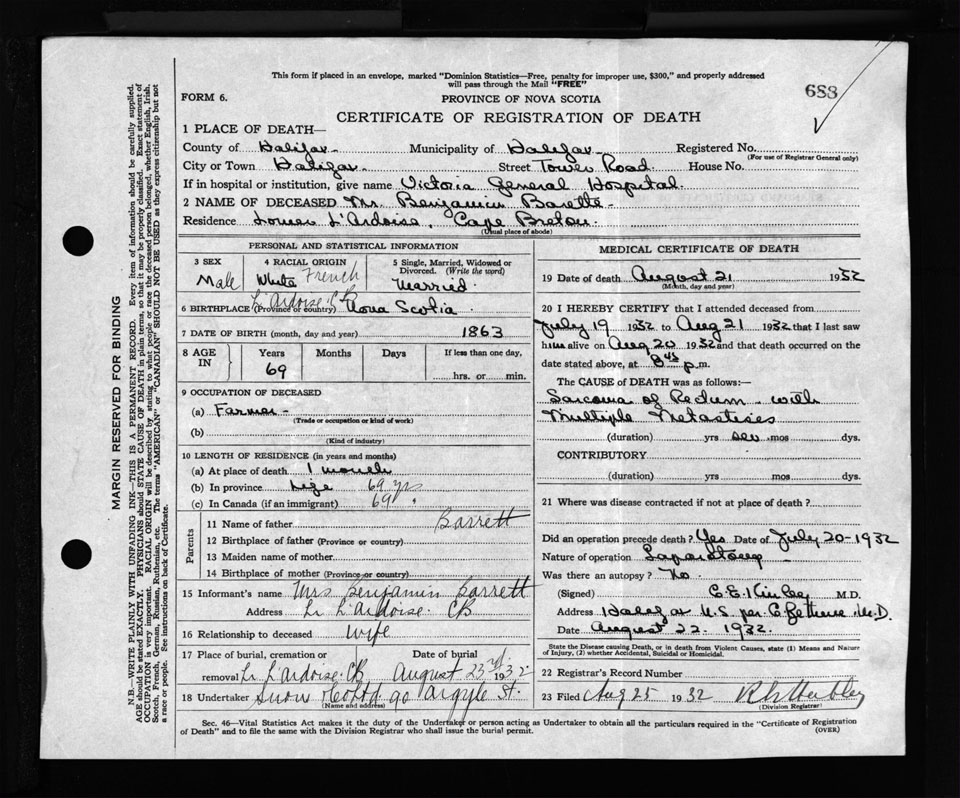 This form if placed in an envelope, marked "Dominion Statistics—Free, penalty for improper use, $300," and properly addressed
will pass through the Mail "FREE"
688
FORM 6.
PROVINCE OF NOVA SCOTIA
CERTIFICATE OF REGISTRATION OF DEATH
1 PLACE OF DEATH—
County of Halifax Municipality of Halifax Registered No.
(For use of Registrar General only)
City or Town Halifax Street Tower Road House No.
If in hospital or institution, give name Victoria General Hospital.
2 NAME OF DECEASED Mr. Benjamin Barette
Residence Lower L'Ardoise, Cape Breton.
(Usual place of abode)
PERSONAL AND STATISTICAL INFORMATION
3 SEX
Male
4 RACIAL ORIGIN
White French
5 Single, Married, Widowed or
Divorced. (Write the word)
Married.
L'Ardoise
6 BIRTHPLACE (Province or country) Nova Scotia
7 DATE OF BIRTH (month, day and year) 1863
8 AGE IN
Years Months Days If less than one day,
69
hrs. or min.
9 OCCUPATION OF DECEASED
(a) Farmer
(Trade or occupation or kind of work)
(b)
(Kind of industry)
10 LENGTH OF RESIDENCE (in years and months)
(a) At place of death 1 month
(b) In province Life 69 yrs
(c) In Canada (if an immigrant) 69 "
Parents
11 Name of father Barrett
12 Birthplace of father (Province or country)
13 Maiden name of mother
14 Birthplace of mother (Province or country)
15 Informant's name Mrs Benjamin Barrett
Address Lr L'Ardoise CB
16 Relationship to deceased Wife
17 Place of burial, cremation or
removal Lr L'Ardoise CB
Date of burial
August 23rd 1932
18 Undertaker Snow Co Ltd 90 Argyle St.
(Name and address)
MEDICAL CERTIFICATE OF DEATH
19 Date of death August 21 1932
(Month, day and year)
20 I HEREBY CERTIFY that I attended deceased from
July 19 1932 to Aug 21 1932 that I last saw
him alive on Aug 20 1932 and that death occurred on the
date stated above, at 8 45 p.m.
The CAUSE OF DEATH was as follows:—
Sarcoma of Rectum with
Multiple Metastises
(duration) yrs mos dys.
CONTRIBUTORY
(duration) yrs mos dys.
21 Where was disease contracted if not at place of death?
Did an operation precede death? Yes Date of July 20-1932
Nature of operation Laparotomy
Was there an autopsy? No.
(Signed) M.D.
Address Halifax N.S. per M.D.
Date August 22. 1932.
State the Disease causing Death, or in death from Violent Causes, state (1) Means and Nature
of Injury, (2) whether Accidental, Suicidal or Homicidal.
22 Registrar's Record Number
23 Filed Aug 25 1932
(Division Registrar)
Sec. 46—Vital Statistics Act makes it the duty of the Undertaker or person acting as Undertaker to obtain all the particulars required in the "Certificate of Registration
of Death" and to file the same with the Division Registrar who shall issue the burial permit.
(OVER)
MARGIN RESERVED FOR BINDING
N.B.—WRITE PLAINLY WITH UNFADING INK—THIS IS A PERMANENT RECORD. Every item of information should be carefully supplied.
AGE should be stated EXACTLY. PHYSICIANS should STATE CAUSE OF DEATH in plain terms, so that it may be properly classified. Exact statement of
OCCUPATION is very important. RACIAL ORIGIN will be described by stating to what people or race the deceased person belonged, whether English, Irish,
Scotch, French, German, Russian, Ruthenian, etc. The terms "AMERICAN" or "CANADIAN" SHOULD NOT BE USED as they express citizenship but not
a race or people. See instructions on back of Certificate.